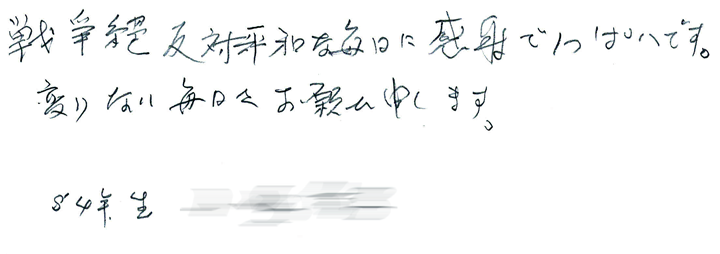 戦争絶反対平和な毎日に感謝でいっぱいです。
変りない毎日をお願い申します。
S4年生